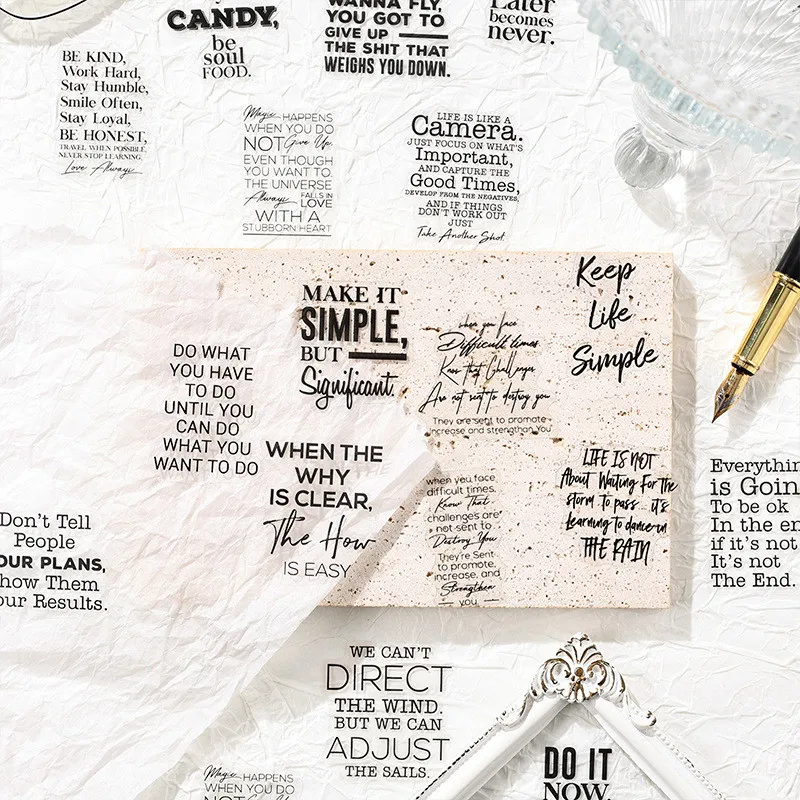 CANDY,
be
soul
FOOD.
WANNA FLY,
YOU GOT TO
GIVE UP
THE SHIT THAT
WEIGHS YOU DOWN.
Later
becomes
never.
BE KIND,
Work Hard,
Stay Humble,
Smile Often,
Stay Loyal,
BE HONEST,
TRAVEL WHEN POSSIBLE,
NEVER STOP LEARNING,
Love Always
Magic HAPPENS
WHEN YOU DO
NOT Give Up,
EVEN THOUGH
YOU WANT TO.
THE UNIVERSE
Always FALLS IN
LOVE
WITH A
STUBBORN HEART
LIFE IS LIKE A
Camera.
JUST FOCUS ON WHAT'S
Important,
AND CAPTURE THE
Good Times,
DEVELOP FROM THE NEGATIVES,
AND IF THINGS
DON'T WORK OUT
JUST
Take Another Shot.
MAKE IT
SIMPLE,
BUT
Significant.
DO WHAT
YOU HAVE
TO DO
UNTIL YOU
CAN DO
WHAT YOU
WANT TO DO
WHEN THE
WHY
IS CLEAR,
The How
IS EASY
when you face
Difficult times
Know that Challenges
Are not sent to destroy you
They are sent to promote
increase and strengthen You
Keep
Life
Simple
when you face
difficult times,
Know That
challenges are
not sent to
Destroy You
They're Sent
to promote,
increase, and
Strengthen
you
LIFE IS NOT
About Waiting For the
storm to pass.. it's
learning to dance in
THE RAIN
Don't Tell
People
OUR PLANS,
how Them
our Results.
Everything
is Goin
To be ok
In the en
if it's not
It's not
The End.
WE CAN'T
DIRECT
THE WIND.
BUT WE CAN
ADJUST
THE SAILS.
Magic HAPPENS
WHEN YOU DO
NOT Give Up
DO IT
NOW.